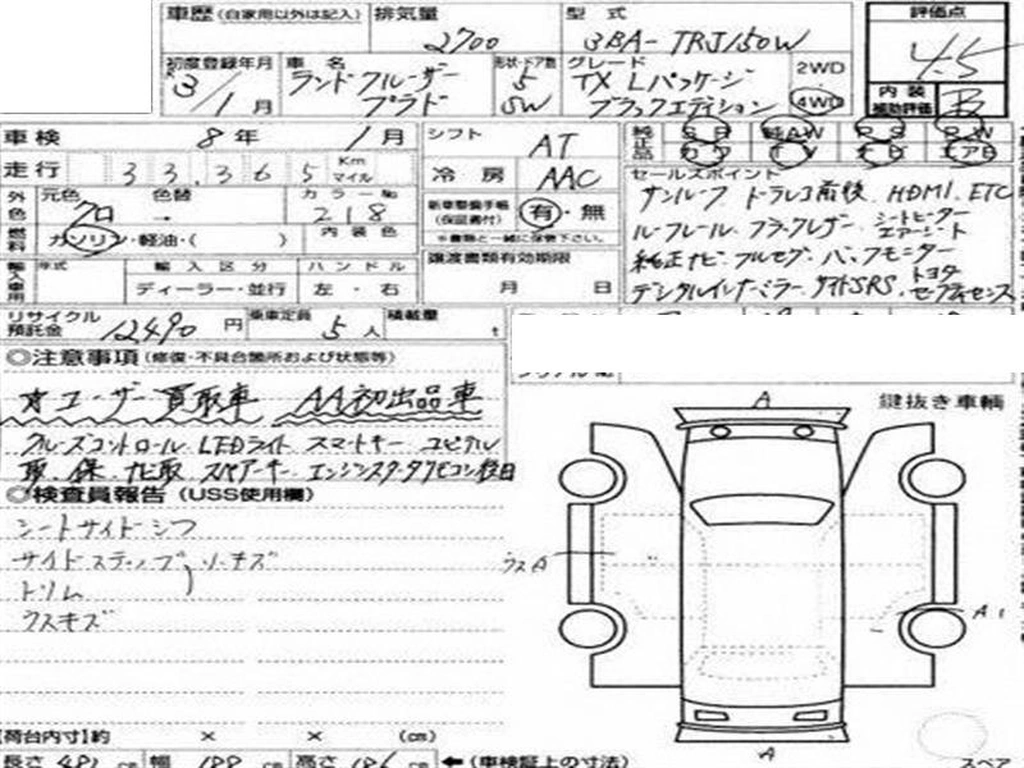 車歴 (自家用以外は記入) 排気量 2700 型式 3BA-TRJ150W 評価点 4.5
初度登録年月 3/1月 車名 ランドクルーザー プラド 形状・ドア数 5 SW グレード TX Lパッケージ ブラックエディション 2WD 4WD 内装補助評価 B
車検 8年 1月 シフト AT 純正品 SR 純AW PS PW
走行 33,365 Km マイル 冷房 AAC カワ TV ナビ エアB
外色 元色 クロ 色替 → カラーNo 218 内装色
新車整備手帳 (保証書付) 有・無
※書類と一緒に保管下さい。
燃料 ガソリン・軽油・( )
セールスポイント
サンルーフ ドラレコ前後、HDMI、ETC
ルーフレール ブラックレザー シートヒーター エアーシート
純正ナビ フルセグ バックモニター
デジタルインナーミラー サイドSRS、トヨタセーフティセンス
輸入車用 年式 輸入区分 ハンドル 譲渡書類有効期限
ディーラー・並行 左・右 月 日
リサイクル預託金 12490円 乗車定員 5人 積載量 t
◎注意事項 (修復・不具合箇所および状態等)
☆ユーザー買取車 AA初出品車
クルーズコントロール LEDライト スマートキー ユピテル
取、保、ナビ取、スペアーキー、エンジンスターターリモコン後日
◎検査員報告 (USS使用欄)
シートサイドシワ
サイドステップ ソ・キズ
トリム
ウスキズ
鍵抜き車輌
A
ウスA
A1
A
【荷台内寸】約 × × (cm)
長さ cm 幅 188 cm 高さ cm ←(車検証上の寸法)
スペア